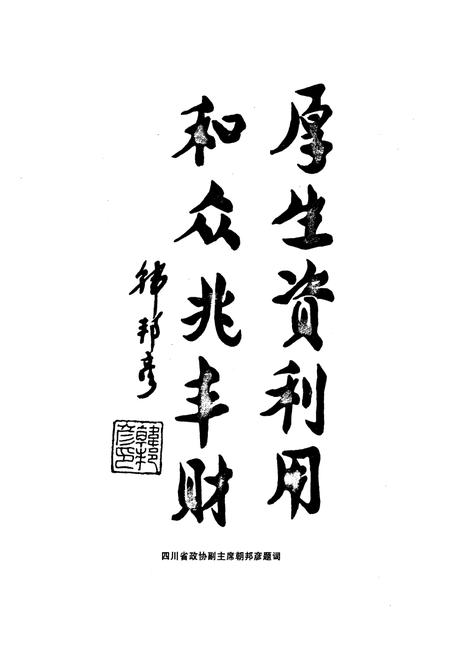 厚生資利用
和众兆丰财
韩邦彦
韓邦彦印
四川省政协副主席朝邦彦题词